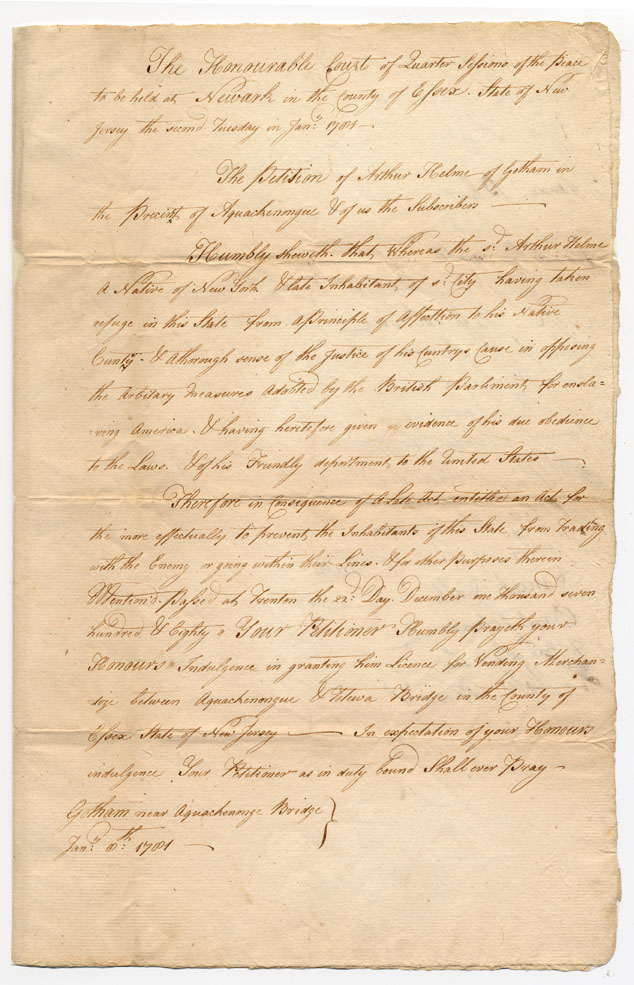 The Honourable Court of Quarter Sessions of the Peace
to be held at Newark in the County of Essex. State of New
Jersey the second Tuesday in Jany. 1781 —
The Petition of Arthur Helme of Gotham in
the Precint of Aquachenongue & of us the Subscribers —
Humbly sheweth. that, Whereas the sd. Arthur Helme
A Native of New York & late Inhabitant, of sd. City having taken
refuge in this State from a Principle of Affection to his Native
Cuntry. & a thorough sense of the Justice of his Cuntrys Cause in opposing
the Arbitary Measures Adobted by the British Parlement, for ensla=
=ving America. & having heretofore given evidence of his due obedience
to the Laws. & of his Friendly deportment, to the United States —
Therefore in Consequence of A Late Act, entitled an Act for
the more effectually to prevent, the Inhabitants of this State from trading
with the Enemy or going within their Lines. & for other Purposes therein
Mention'd. Passed at, Trenton the 22d. Day December one thousand seven
hundred & Eighty Your Petitioner Humbly Prayeth your
Honours Indulgence in granting him Licence for Vending Merchan=
dize between Aquachenongue & Totuwa Bridge in the County of
Essex State of New Jersey — In expectation of your Honours
indulgence Your Petitioner as in duty bound Shall ever Pray —
Gotham near Aquachenonge Bridge }
Jany. 8th. 1781 —